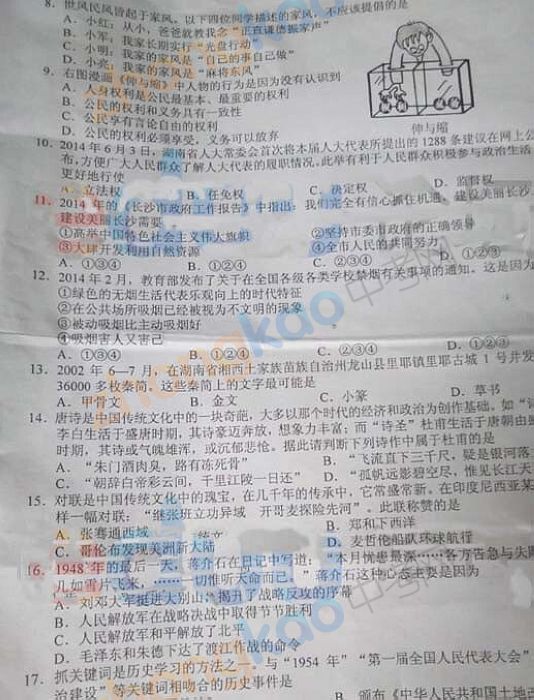 8. 世风民风皆起于家风。以下四位同学描述的家风，不应该提倡的是
A. 小红：从小，爸爸就教我念“正直谦德振家声”
B. 小军：我家长期实行“光盘行动”
C. 小明：我家的家风是“自己的事自己做”
D. 小亮：我家的家风是“麻将东风”
9. 右图漫画《伸与缩》中人物的行为是因为没有认识到
A. 人身权利是公民最基本、最重要的权利
B. 公民的权利和义务具有一致性
C. 公民享有言论自由的权利
D. 公民的权利必须享受，义务可以放弃
伸与缩
10. 2014 年 6 月 3 日，湖南省人大常委会首次将本届人大代表所提出的 1288 条建议在网上公
布，方便广大人民群众了解人大代表的履职情况。此举有利于人民群众积极参与政治生活
更好地行使
A. 立法权 B. 任免权 C. 决定权 D. 监督权
11. 2014 年的《长沙市政府工作报告》中指出：我们完全有信心抓住机遇、建设美丽长沙
建设美丽长沙需要
①高举中国特色社会主义伟大旗帜 ②坚持市委市政府的正确领导
③大肆开发利用自然资源 ④全市人民的共同努力
A. ①③④ B. ①②④ C. ②③④ D. ①②③
12. 2014 年 2 月，教育部发布了关于在全国各级各类学校禁烟有关事项的通知。这是因为
①绿色的无烟生活代表乐观向上的时代特征
②在公共场所吸烟已经被视为不文明的现象
③被动吸烟比主动吸烟好
④吸烟害人又害己
A. ①③④ B. ①②④ C. ②③④ D. ①②③
13. 2002 年 6—7 月，在湖南省湘西土家族苗族自治州龙山县里耶镇里耶古城 1 号井发
36000 多枚秦简。这些秦简上的文字最可能是
A. 甲骨文 B. 金文 C. 小篆 D. 草书
14. 唐诗是中国传统文化中的一块奇葩，大多以那个时代的经济和政治为创作基础。如“诗
李白生活于盛唐时期，其诗豪迈奔放，想象力丰富；而“诗圣”杜甫生活于唐朝由盛
时期，其诗或气魄雄浑，或沉郁悲怆。据此请判断下列诗作中属于杜甫的是
A. “朱门酒肉臭，路有冻死骨” B. “飞流直下三千尺，疑是银河落
C. “朝辞白帝彩云间，千里江陵一日还” D. “孤帆远影碧空尽，惟见长江天
15. 对联是中国传统文化中的瑰宝，在几千年的传承中，它常盛常新。在印度尼西亚某
样一幅对联：“继张班立功异域 开哥麦探险先河”。此联称赞的是
A. 张骞通西域 B. 郑和下西洋
C. 哥伦布发现美洲新大陆 D. 麦哲伦船队环球航行
16. 1948 年的最后一天，蒋介石在日记中写道：“本月忧患最深……各方告急与失陷
几如雪片飞来，……一切惟听天命而已。”蒋介石这种心态主要是因为
A. 刘邓大军挺进大别山，揭开了战略反攻的序幕
B. 人民解放军在战略决战中取得节节胜利
C. 人民解放军和平解放了北平
D. 毛泽东和朱德下达了渡江作战的命令
17. 抓关键词是历史学习的方法之一，与“1954 年”“第一届全国人民代表大会”
治建设”等关键词相吻合的历史事件是
B. 颁布《中华人民共和国土地改